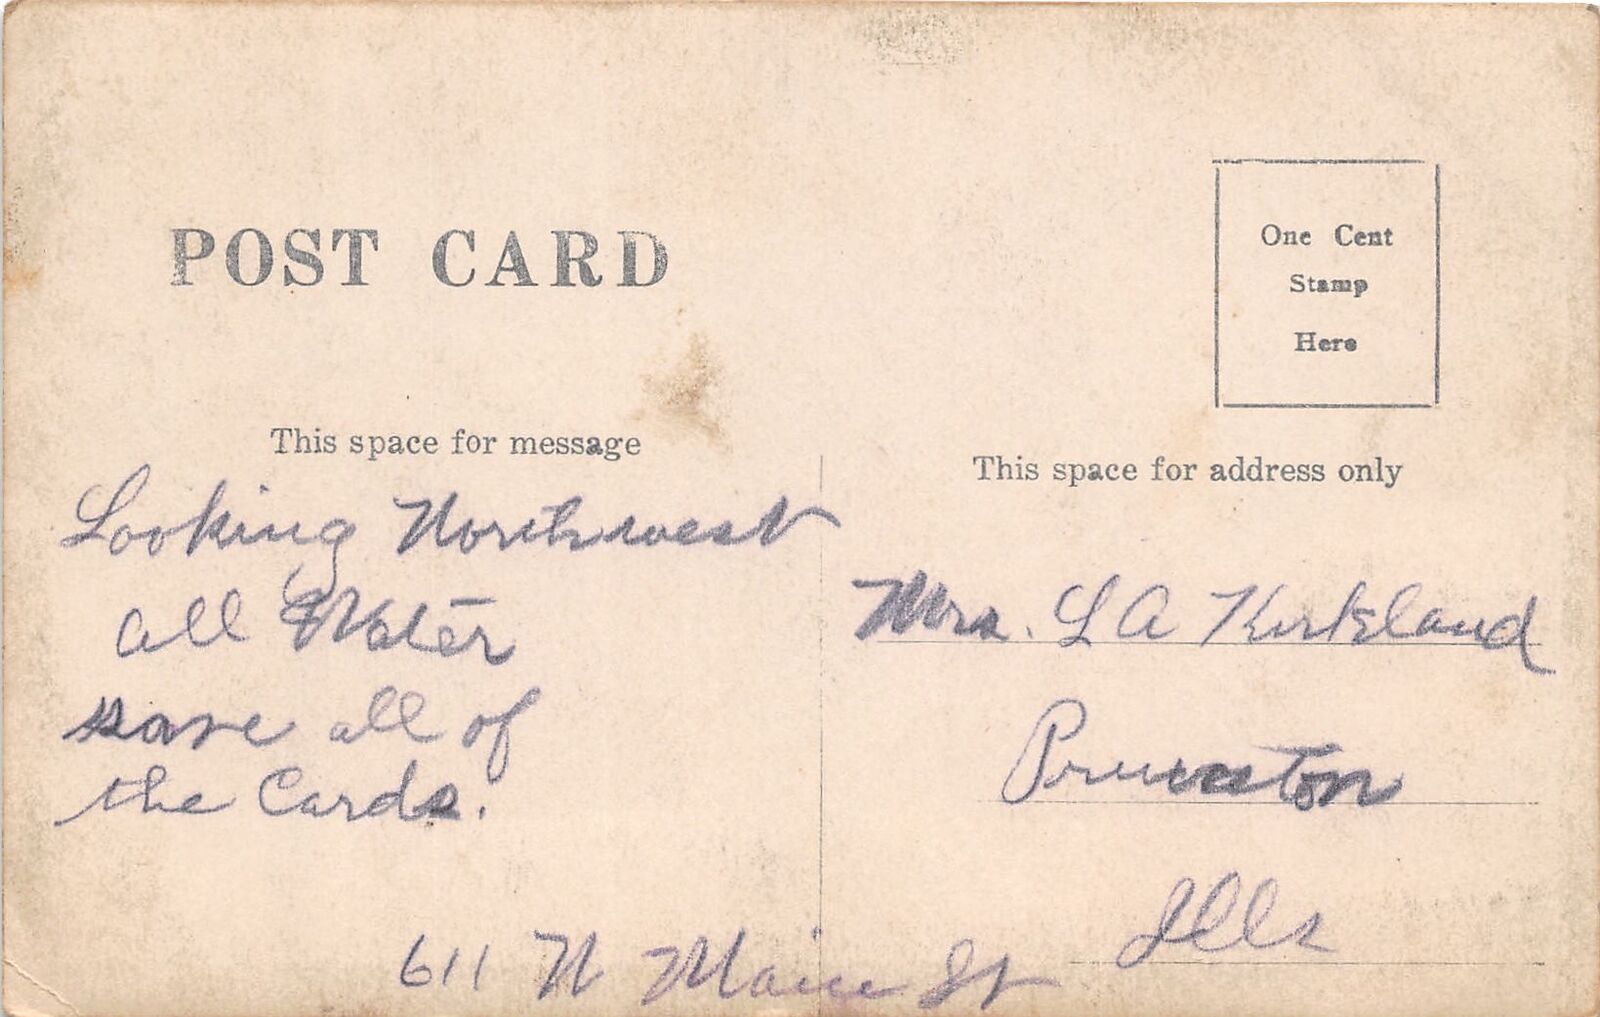 POST CARD
One Cent
Stamp
Here
This space for message
Looking Northwest
all Water
save all of
the Cards.
This space for address only
Mrs. L A Kirkland
Princeton
Ills
611 N Main St